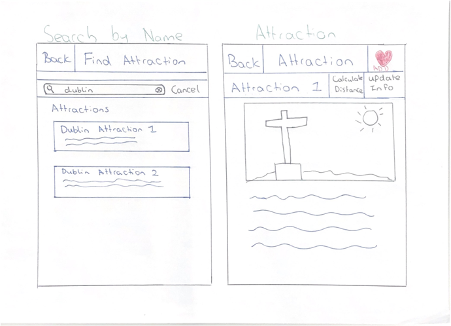 Search by Name
Back Find Attraction
dublin Cancel
Attractions
Dublin Attraction 1
Dublin Attraction 2
Attraction
Back Attraction
Attraction 1
Calculate
Distance
update
Info